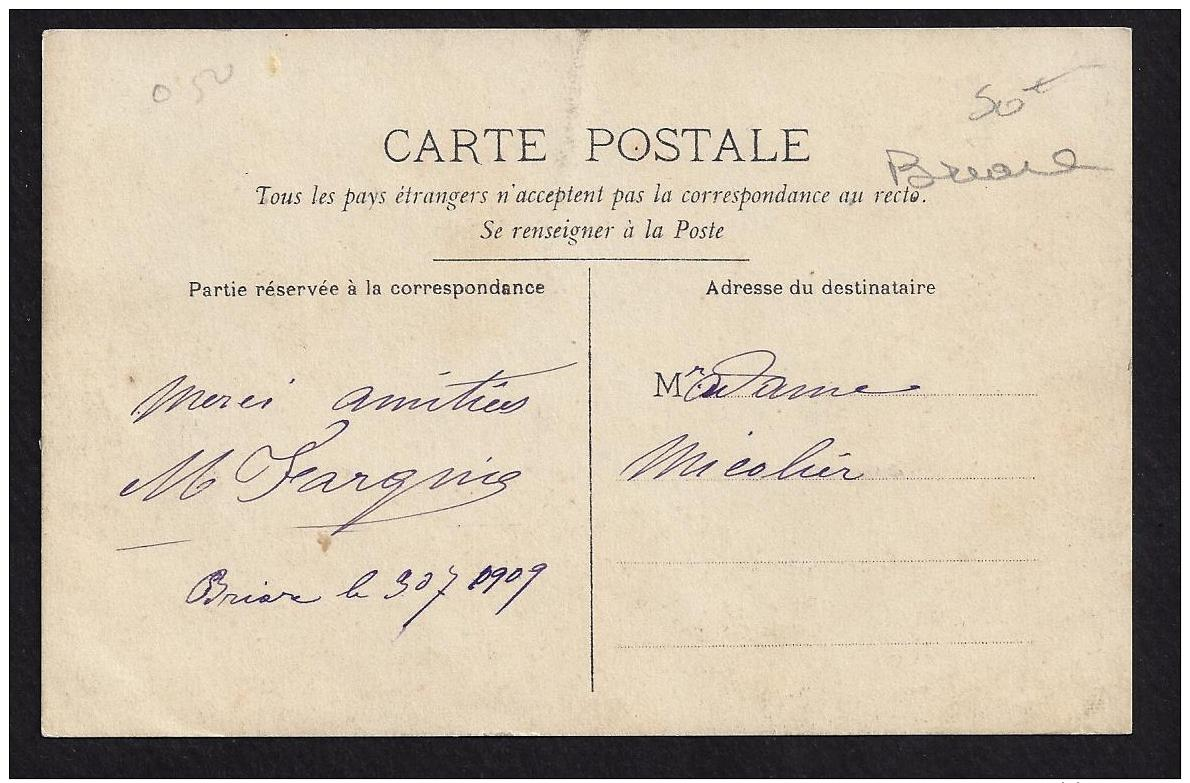 0 50
50
Briare
CARTE POSTALE
Tous les pays étrangers n'acceptent pas la correspondance au recto.
Se renseigner à la Poste
Partie réservée à la correspondance
Adresse du destinataire
Merci amitiés
M
Briare le 30 7 1909
Madame
Micolier